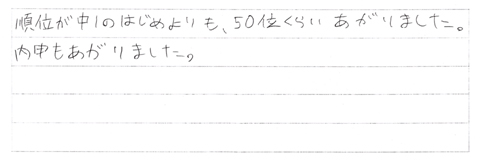 順位が中1のはじめよりも、50位くらい あがりました。
内申もあがりました。